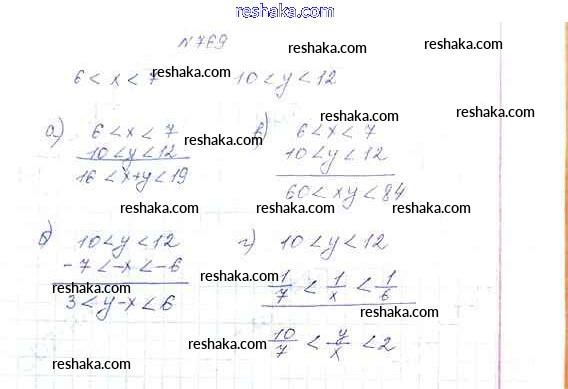 reshaka.com
№769
reshaka.com
reshaka.com
6 < x < 7 10 < y < 12
reshaka.com
reshaka.com
reshaka.com
reshaka.com
а) 6 < x < 7
10 < y < 12
16 < x+y < 19
reshaka.com
в) 6 < x < 7
10 < y < 12
60 < xy < 84
reshaka.com
reshaka.com
reshaka.com
reshaka.com
б) 10 < y < 12
-7 < -x < -6
3 < y-x < 6
reshaka.com
г) 10 < y < 12
1/7 < 1/x < 1/6
10/7 < y/x < 2
reshaka.com
reshaka.com
reshaka.com
reshaka.com
reshaka.com